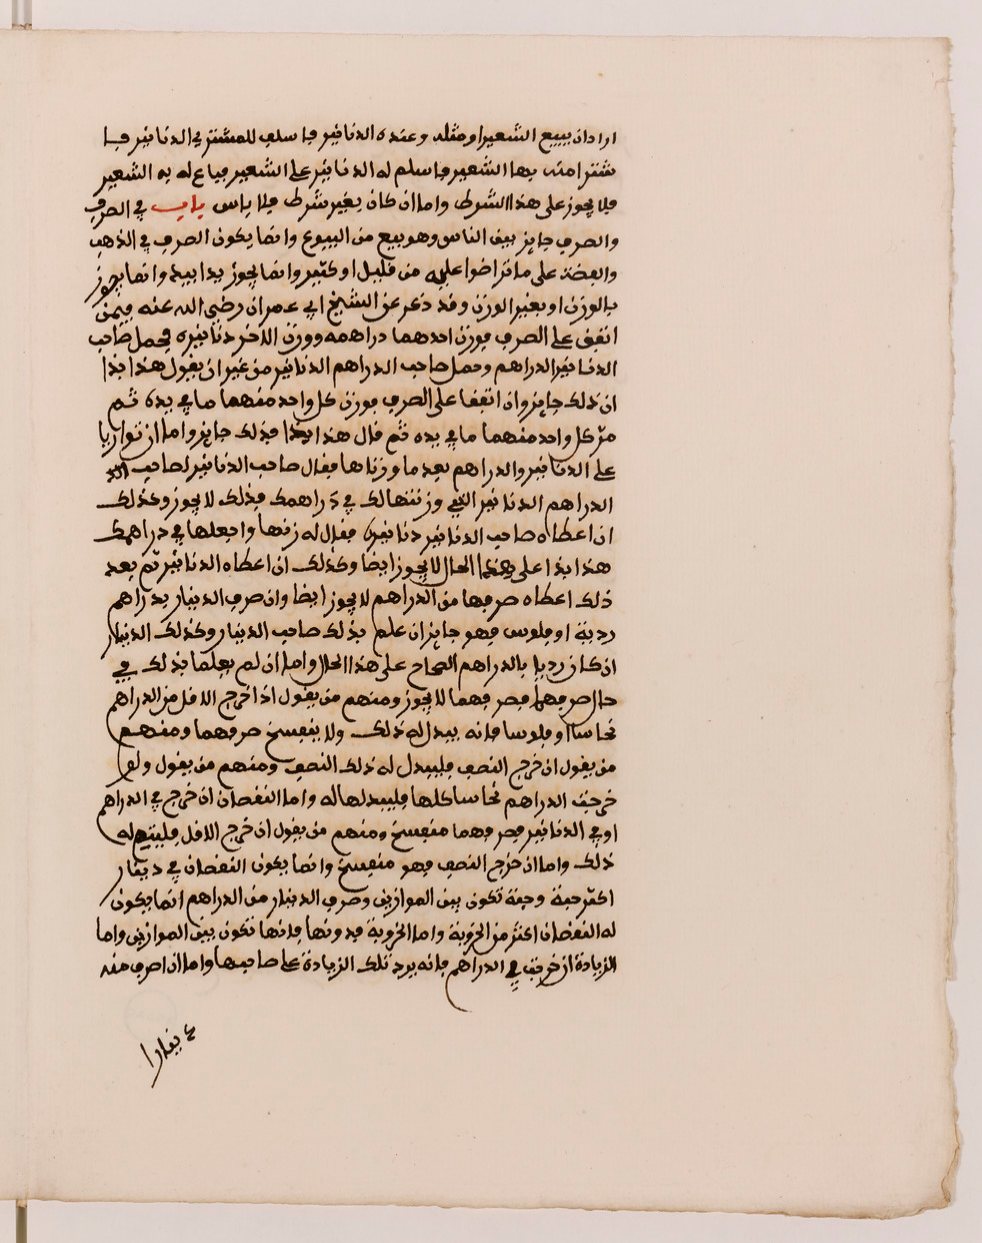 اراد ان يبيع الشعير او مثله وعنده الدنانير فاسلف للمشتري الدنانير فا
شترا منه بها الشعير فاسلم له الدنانير على الشعير فباع له به الشعير
فلا يجوز على هذا الشرط واما ان كان بغير شرط فلا باس باب في الصرف
والصرف جايز بين الناس وهو بيع من البيوع وانما يكون الصرف في الذهب
والفضة على ما تراضوا عليه من قليل او كثير وانما يجوز يدا بيد وانما يجوز
بالوزن او بغير الوزن وقد ذكر عن الشيخ ابي عمران رضي الله عنه فيمن
اتفق على الصرف فوزن احدهما دراهمه ووزن الاخر دنانيره فحمل صاحب
الدنانير الدراهم وحمل صاحب الدراهم الدنانير من غير ان يقول هذا بذا
ان ذلك جايز وان اتفقا على الصرف فوزن كل واحد منهما ما في يده ثم
مر كل واحد منهما ما في يده ثم قال هذا بهذا فذلك جايز واما ان توازيا
على الدنانير والدراهم بعد ما وزناها فقال صاحب الدنانير لصاحب
الدراهم الدنانير التي وزنتها لك في دراهمك فذلك لا يجوز وكذلك
ان اعطاه صاحب الدنانير دنانيره فقال له زنها واجعلها في دراهمك
هذا بذا على هذا الحال لا يجوز ايضا وكذلك ان اعطاه الدنانير ثم بعد
ذلك اعطاه صرفها من الدراهم لا يجوز ايضا وان صرف الدينار بدراهم
ردية او فلوس فهو جايز ان علم بذلك صاحب الدينار وكذلك الدينار
ان كان رديا بالدراهم الصحاح على هذا الحال واما ان لم يعلما بذلك في
حال صرفهما فصرفهما لا يجوز ومنهم من يقول اذا خرج الاقل من الدراهم
نحاسا او فلوسا فانه يبدل له ذلك ولا ينفسخ صرفهما ومنهم
من يقول ان خرج النصف فليبدل له ذلك النصف ومنهم من يقول ولو
خرجت الدراهم نحاسا كلها فليبدلها له واما النقصان ان خرج في الدراهم
او في الدنانير فصرفهما منفسخ ومنهم من يقول ان خرج الاقل فليتمه له
ذلك واما ان خرج النصف فهو منفسخ وانما يكون النقصان في دينار
اكثر حبة وحبة تكون بين الموازين وصرف الدينار من الدراهم انما يكون
له النقصان اكثر من الخروبة واما الخروبة فدونها فانها تكون بين الموازين واما
الزيادة ان خرجت في الدراهم فانه يرد تلك الزيادة على صاحبها واما ان صرف منه